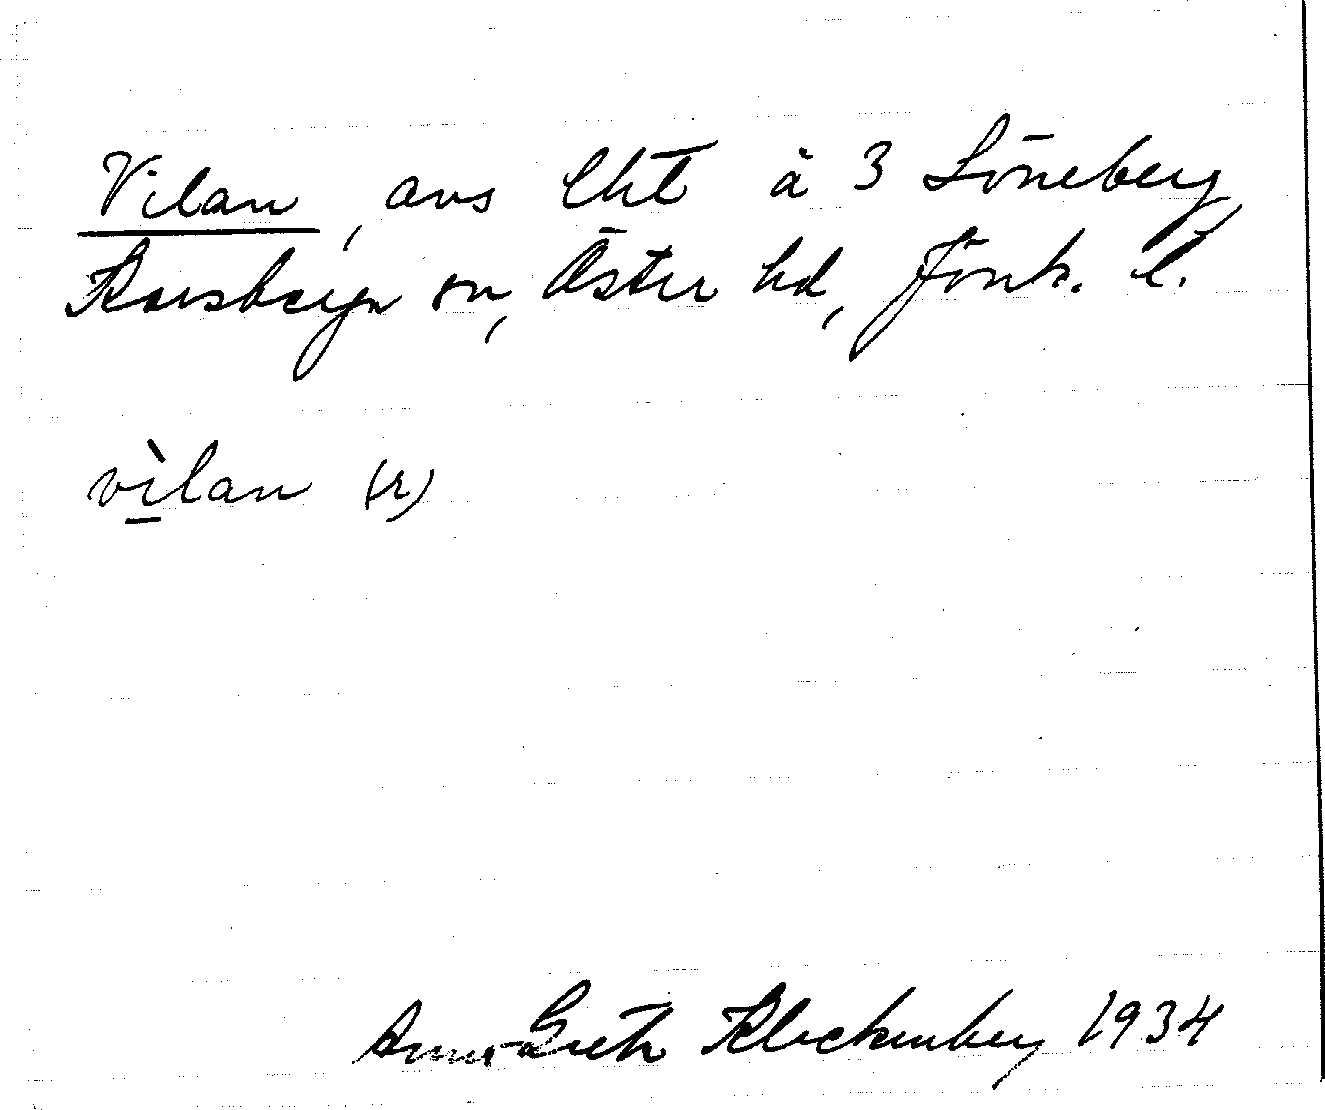 Vilan, avs lht å 3 Löneberg,
Korsberga sn, Östra hd, Jönk. l.
vìlan (r)
Anna-Greta Klockenberg 1934